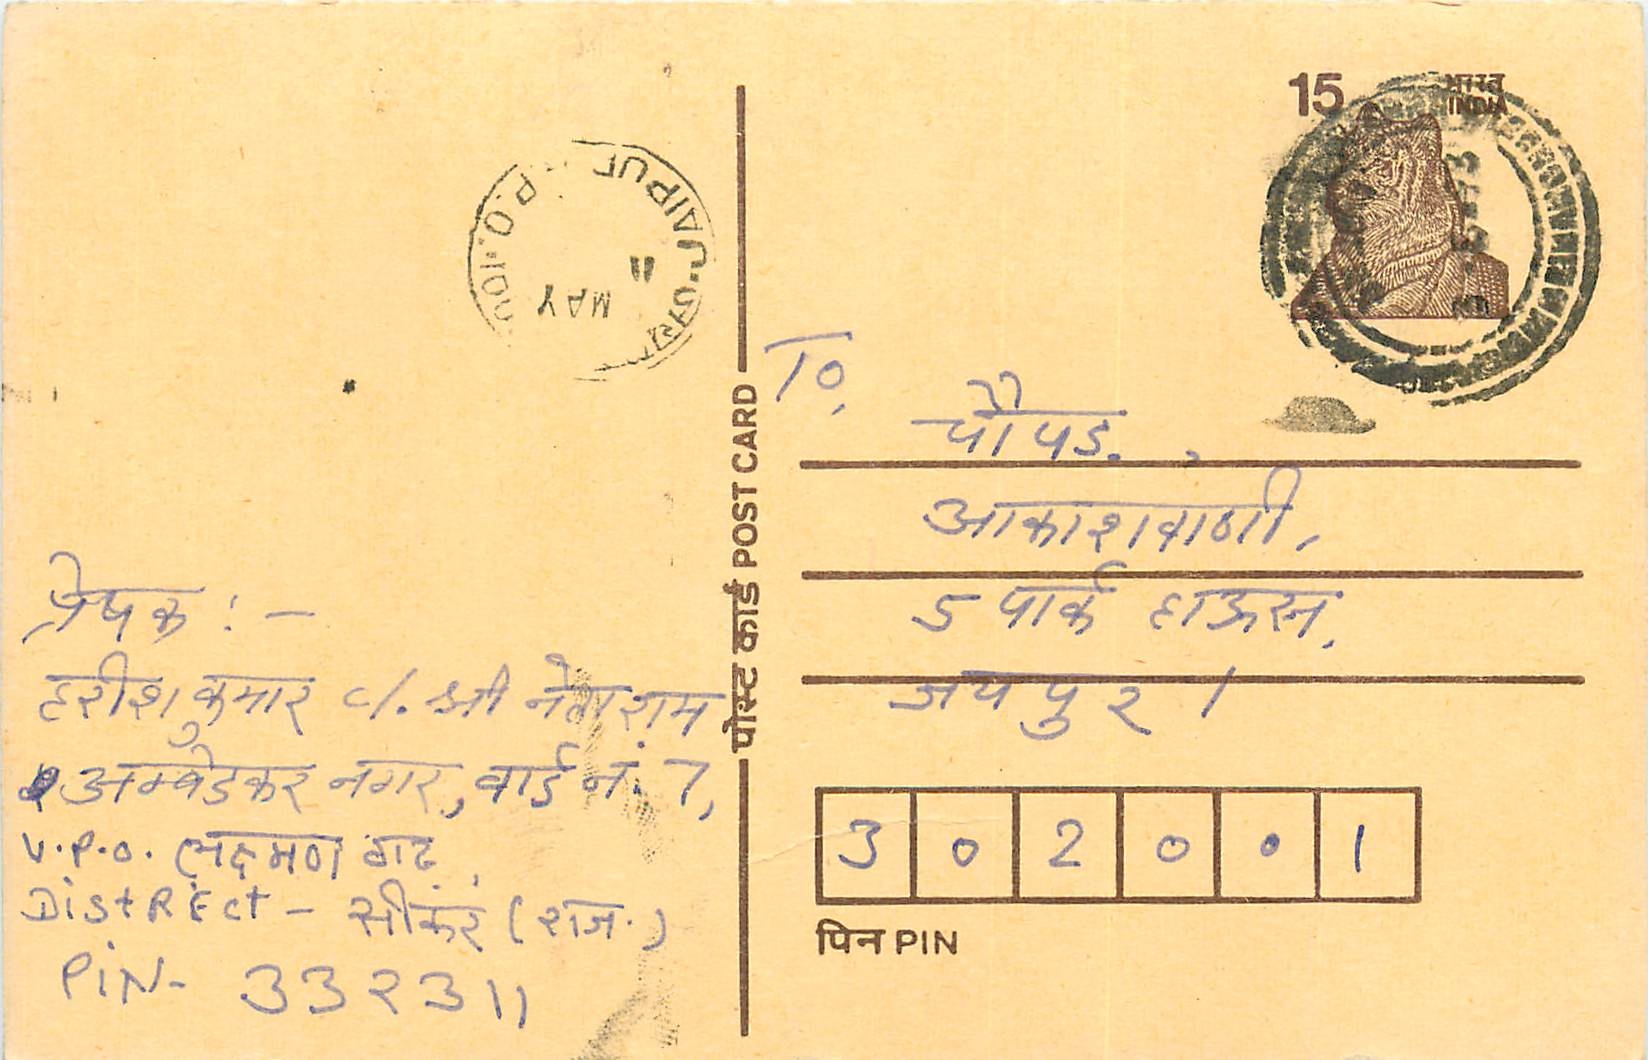 15 भारत
INDIA
JAIPUR
P.O.
MAY
11
पोस्ट कार्ड POST CARD
To,
चौपड़,
आकाशवाणी,
5 पार्क हाऊस,
जयपुर।
3 0 2 0 0 1
पिन PIN
प्रेषक :-
हरीश कुमार c/. श्री नेताराम
अम्बेडकर नगर, वार्ड नं. 7,
V.P.O. लक्ष्मणगढ़
DistREct - सीकर (राज.)
PiN- 332311